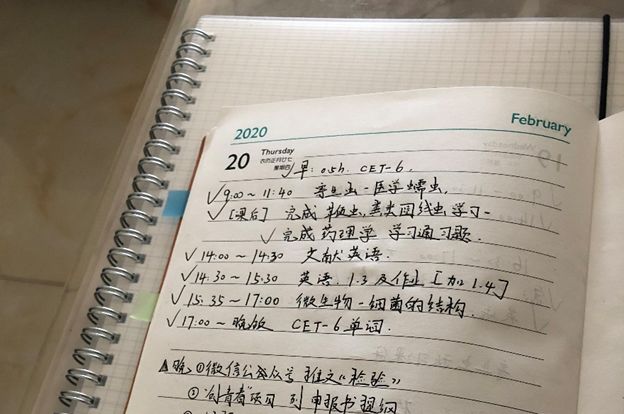 2020
February
20
Thursday
农历正月廿七
星期四
√早: 0.5h. CET-6.
√9:00～11:40 寄生虫-医学蠕虫.
√[课后] 完成 线虫学习.
√完成药理学 学习通习题.
√14:00～14:30 文献英语.
√14:30～15:30 英语. 1.3及作业[加1.4]
√15:35～17:00 微生物-细菌的结构.
√17:00～晚饭 CET-6单词.
▲晚 ①微信公众号推文《检验》
②"创青春"项目 列申报书提纲